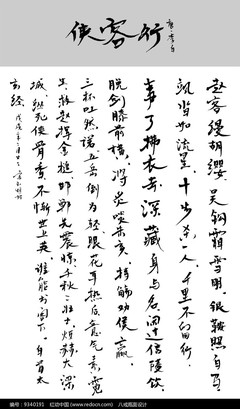 侠客行
唐李白
赵客缦胡缨吴钩霜雪明银鞍照白马
飒沓如流星十步杀一人千里不留行
事了拂衣去深藏身与名闲过信陵饮
脱剑膝前横将炙啖朱亥持觞劝侯嬴
三杯吐然诺五岳倒为轻眼花耳热后意气素霓
生救赵挥金槌邯郸先震惊千秋二壮士烜赫大梁
城纵死侠骨香不惭世上英谁能书阁下白首太
玄经戊戌年
编号：9340191 红动中国 (www.redocn.com)